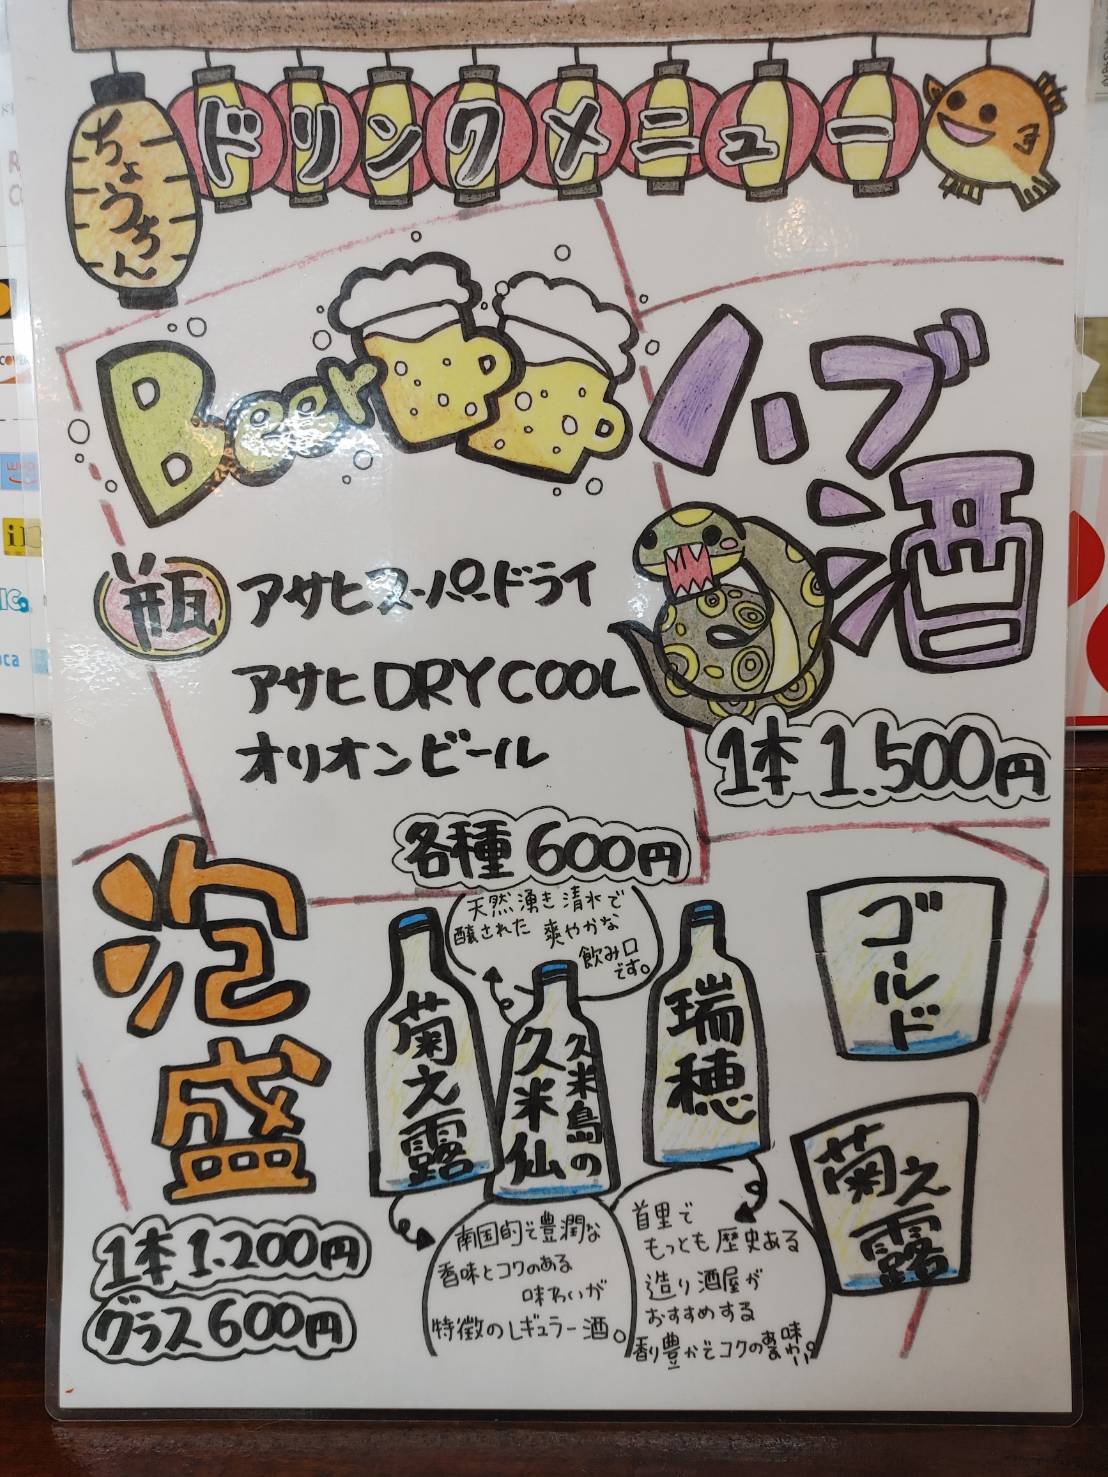 ドリンクメニュー
ちょうちん
Beer
瓶
アサヒスーパードライ
アサヒDRY COOL
オリオンビール
各種600円
ハブ
酒
1本1.500円
泡
盛
1本1.200円
グラス600円
天然湧き清水で
醸された爽やかな
飲み口
です。
菊之露
久米島の
久米仙
瑞穂
ゴールド
菊之露
南国的で豊潤な
香味とコクのある
味わいが
特徴のレギュラー酒。
首里で
もっとも歴史ある
造り酒屋が
おすすめする
香り豊かでコクのある味わい。